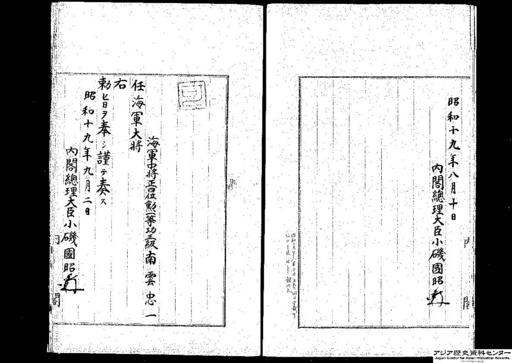 昭和十九年八月十日
內閣總理大臣小磯國昭
海軍中將正四位勲一等功三級南雲忠一
任海軍大將
右
勅旨ヲ奉シ謹テ奏ス
昭和十九年九月二日
內閣總理大臣小磯國昭
內閣
アジア歴史資料センター
Japan Center for Asian Historical Records